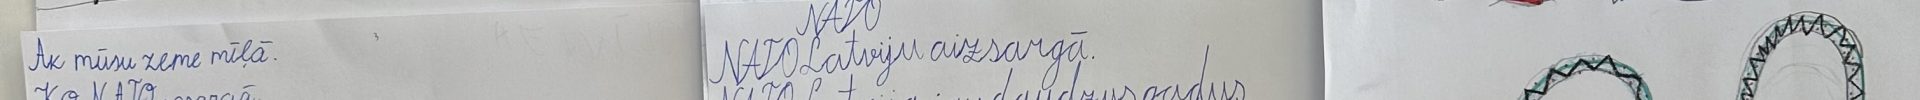 Ak mūsu zeme mīļā.
Ko NATO sargā
NATO
NATO Latviju aizsargā.
NATO Latvijā jau daudzus gadus